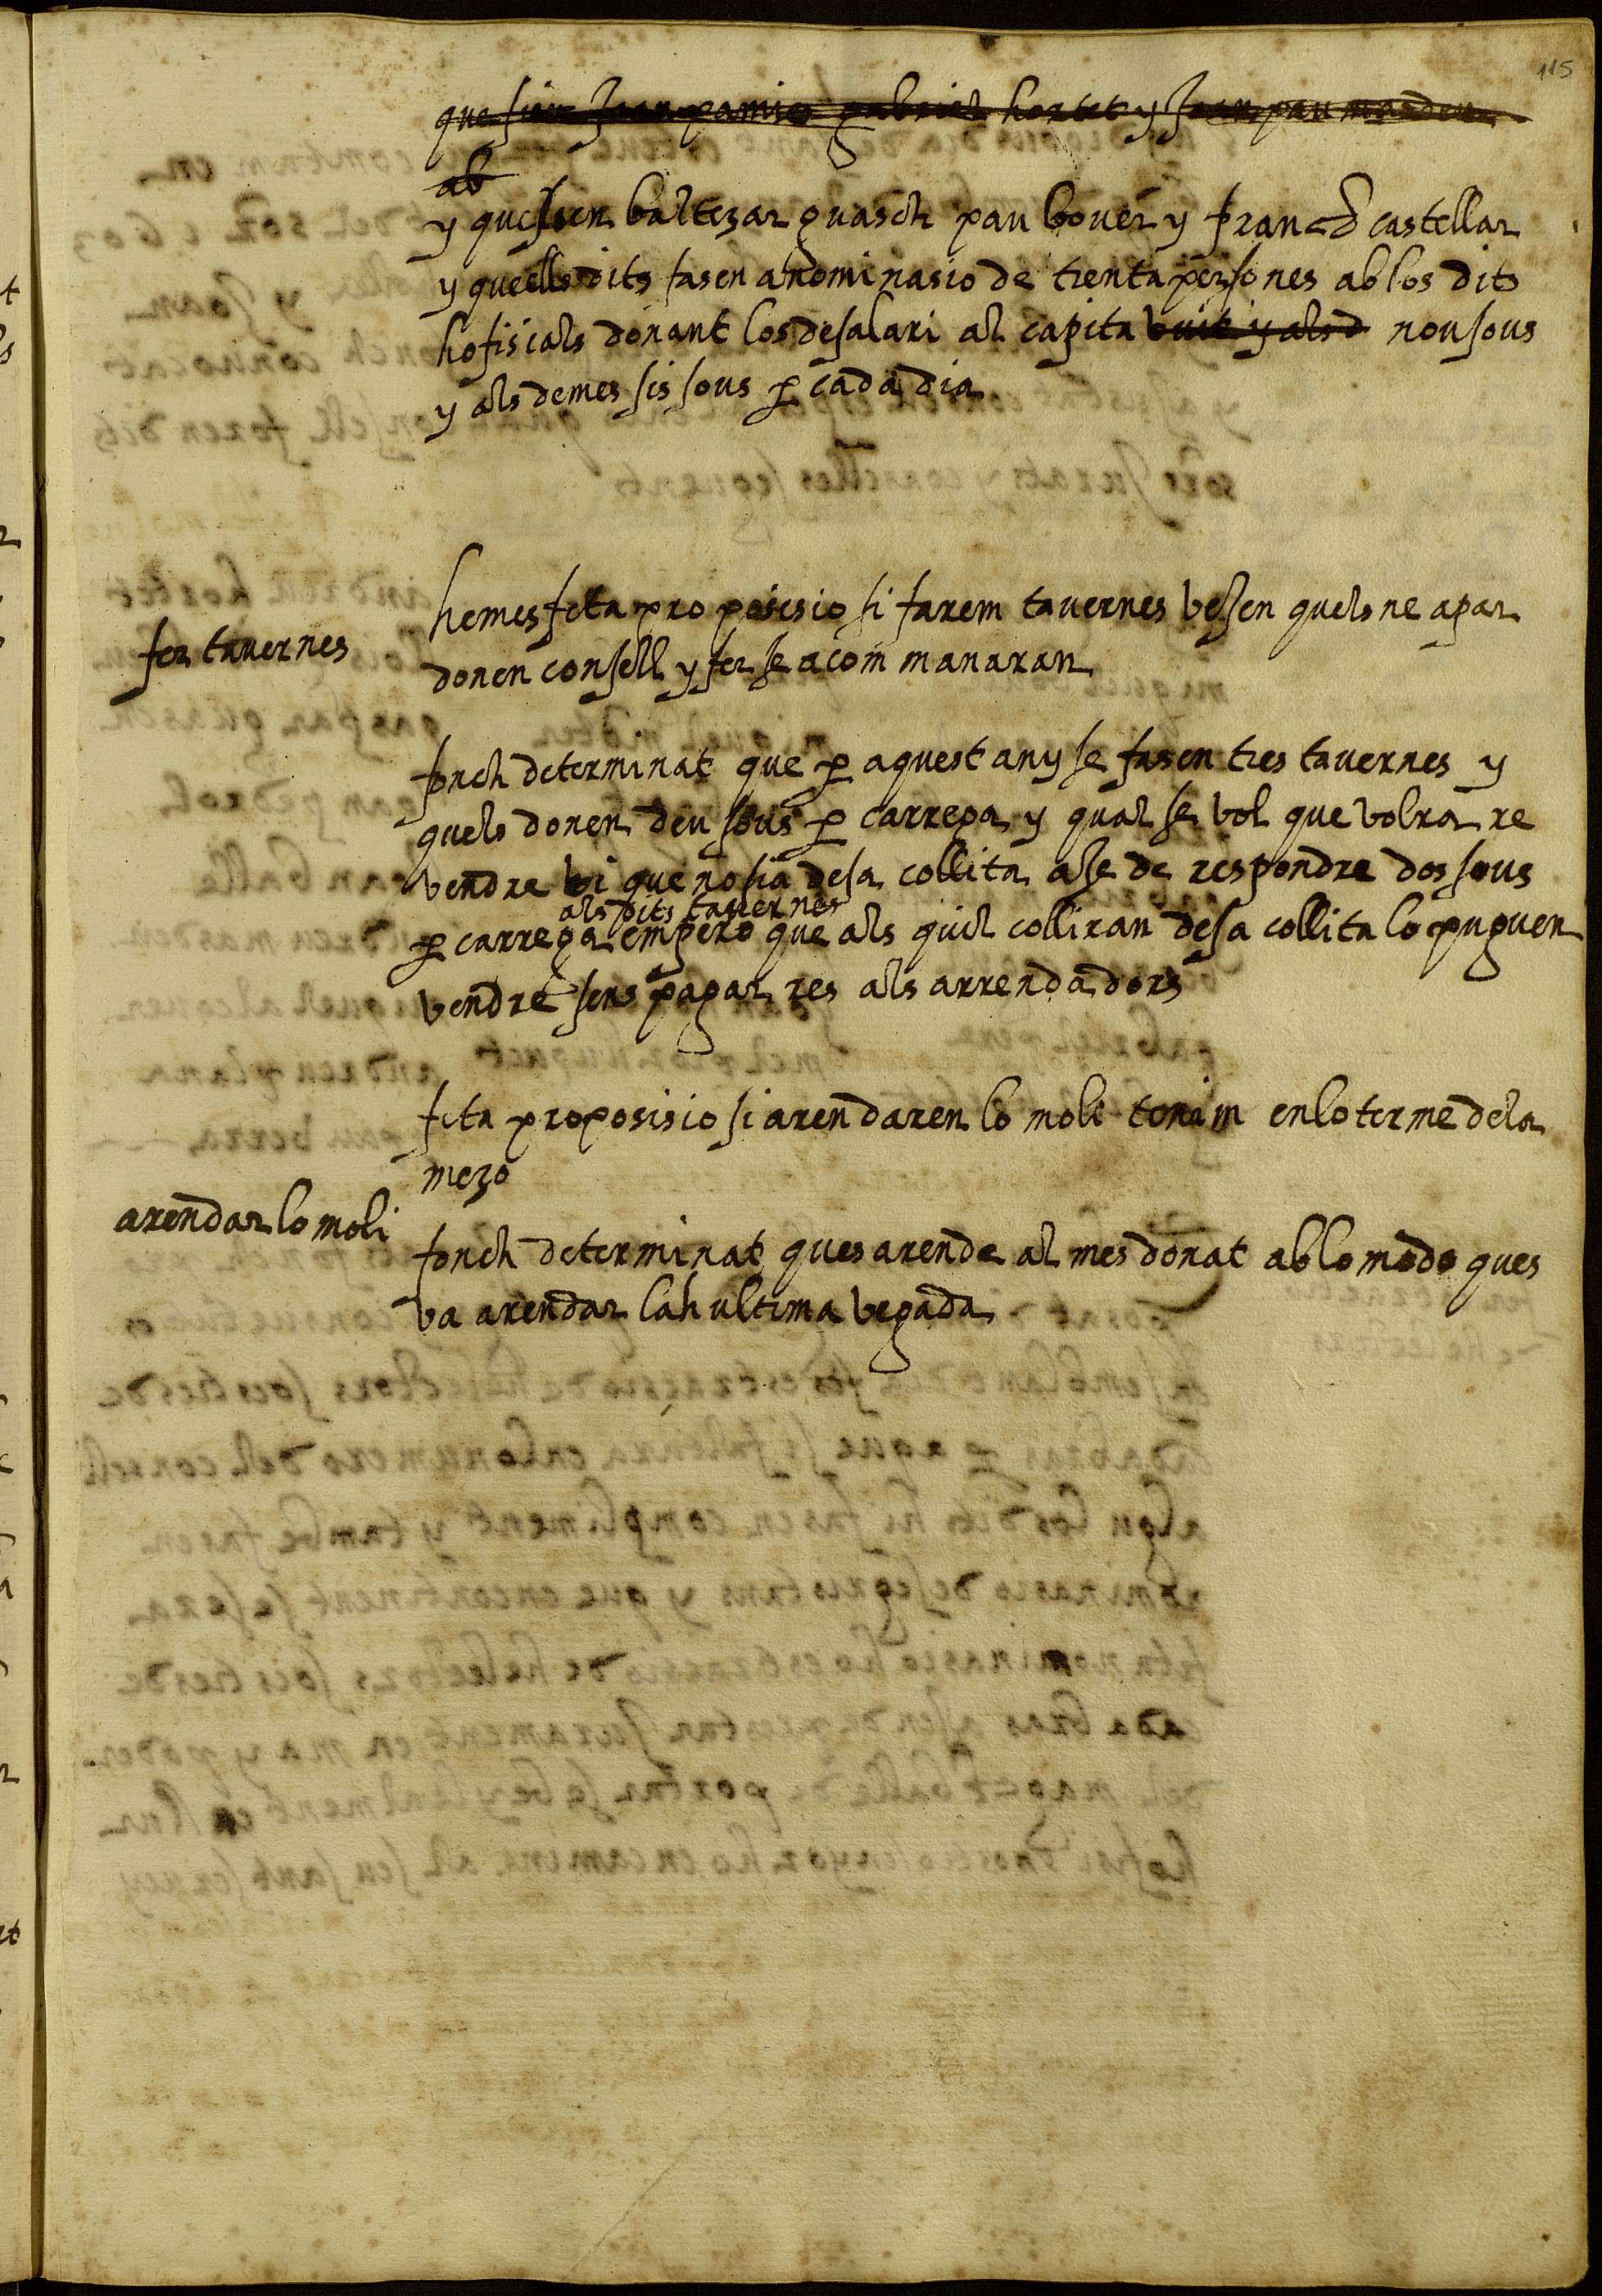 115
que sien Joan pamies gabriel hortet y Joan pau masdeu
ab
y que sien baltezar guasch pau bover y franch castellar
y que ells dits fasen anominasio de trenta persones ab los dits
hofisials donant los de salari al capita vuit y als d nou sous
y als demes sis sous p cada dia
fer tavernes
hemes feta proposisio si farem tavernes vejen quels ne apar
donen consell y fer se a com manaran
fonch determinat que p aquest any se fasen tres tavernes y
quels donen deu sous p carrega y qual se vol que volra re
vendre vi que no sia de sa collita a se de respondre dos sous
als dits taverners
p carrega empero que als quil colliran de sa collita lo puguen
vendre sens pagar res als arrendadors
feta proposisio si arendaren lo moli tenim en lo terme de la
mezo
arendar lo moli
fonch determinat ques arende al mes donat ab lo modo ques
va arendar lah ultima vegada